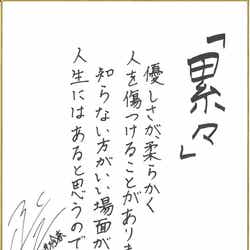 「累々」
優しさが柔らかく
人を傷つけることがあり
知らない方がいい場面が
人生にはあると思うので